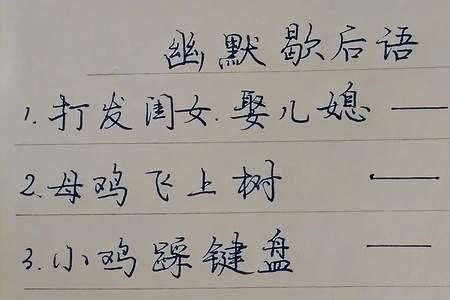 幽默歇后语
1.打发闺女.娶儿媳——
2.母鸡飞上树——
3.小鸡踩键盘——